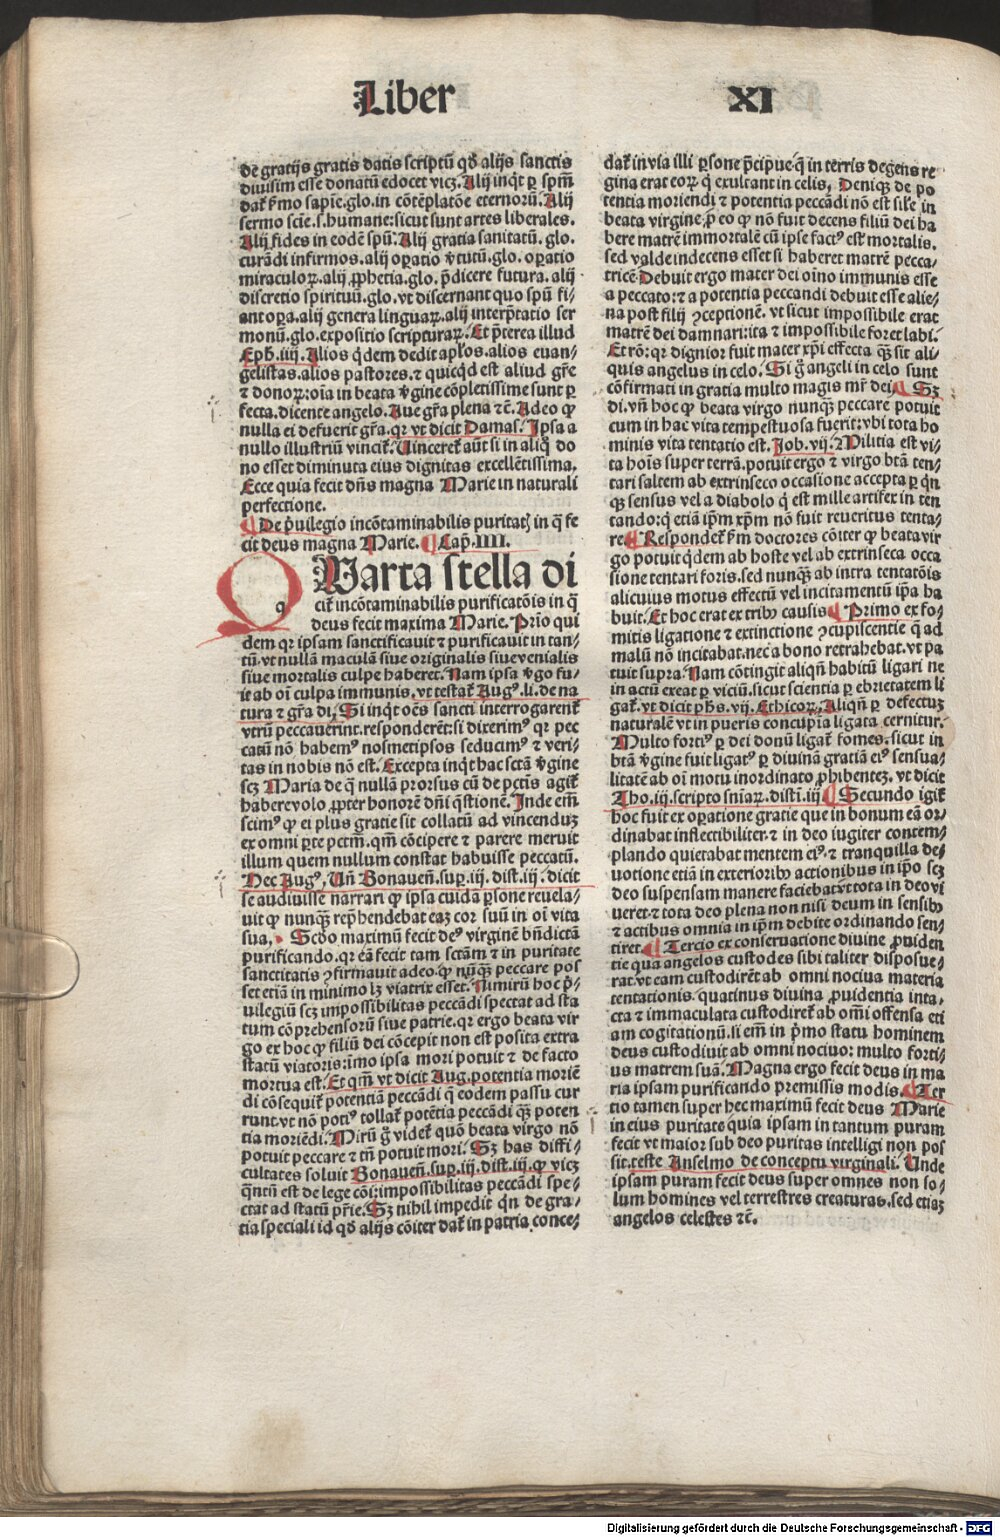 Liber XI
de gratijs gratis datis scriptū qđ alijs sanctis
diuisim esse donatū edocet vicȝ. Alij inq̇t ꝑ spm̄
dat᷑ ẜmo sapiē. glo. in cōtēplatōe eternoꝝ. Alij
sermo sciē. s. humane: sicut sunt artes liberales.
Alij fides in eodē spū. Alij gratia sanitatū. glo.
curādi infirmos. alij oꝑatio v̓tutū. glo. oꝑatio
miraculoꝝ. alij ꝓphetia. glo. p̄dicere futura. alij
discretio spirituū. glo. vt discernant quo spū fi⸗
ant oꝑa. alij genera linguaꝝ. alij interp̄tatio ser
monū. glo. expositio scripturaꝝ. Et p̄terea illud
Eph̄. iiij. Alios q̇dem dedit apl̓os. alios euan⸗
gelistas. alios pastores. ⁊ quicq̇d est aliud gr̄e
⁊ donoꝝ: oīa in beata v̓gine cōpletissime sunt ꝑ
fecta. dicente angelo. Aue gr̄a plena ⁊c̄. Adeo ꝙ
nulla ei defuerit gr̄a. qꝛ vt dicit Damas. Ipsa a
nullo illustriū vincit᷑. Uinceret᷑ aūt si in aliq̊ do
no esset diminuta eius dignitas excellētissima.
Ecce quia fecit dn̄s magna Marie in naturali
perfectione.
¶ De p̓uilegio incōtaminabilis puritatꝭ in q̄ fe
cit deus magna Marie. ¶ Cap̄. IIII.
Quarta stella di
cit᷑ incōtaminabilis purificatōis in q̄
deus fecit maxima Marie. Prīo qui
dem qꝛ ipsam sanctificauit ⁊ purificauit in tan⸗
tū. vt nullā maculā siue originalis siue venialis
siue mortalis culpe haberet. Nam ipsa v̓go fu⸗
it ab oī culpa immunis. vt testat᷑ Augꝰ. li. de na
tura ⁊ gr̄a di. Si inq̇t oēs sancti interrogarent᷑
vtrū peccauerint. responderēt: si dixerimꝰ qꝛ pec
catū nō habemꝰ nosmetipsos seducimꝰ ⁊ veri⸗
tas in nobis nō est. Excepta inq̇t hac sctā v̓gine
scȝ Maria de q̄ nullā prorsus cū de pctīs agit᷑
habere volo ꝓpter honorē dn̄i q̄stionē. Inde em̄
scimꝰ ꝙ ei plus gratie sit collatū ad vincenduȝ
ex omni ꝑte pctm̄. qm̄ cōcipere ⁊ parere meruit
illum quem nullum constat habuisse peccatū.
Hec Augꝰ. Un̄ Bonauen̄. suꝑ. iij. dist. iij. dicit
se audiuisse narrari ꝙ ipsa cuidā ꝑsone reuela⸗
uit ꝙ nunqꝫ rep̄hendebat eaȝ cor suū in oī vita
sua. Scd̓o maximū fecit deꝰ virginē bn̄dictā
purificando. qꝛ eā fecit tam sctām ⁊ in puritate
sanctitatis ꝯfirmauit adeo. ꝙ nūqꝫ peccare pos
set etiā in minimo lȝ viatrix esset. Nimirū hoc p̓⸗
uilegiū scȝ impossibilitas peccādi spectat ad sta
tum cōprehensorū siue patrie. qꝛ ergo beata vir
go ex hoc ꝙ filiū dei cōcepit non est posita extra
statū viatoris: īmo ipsa mori potuit ⁊ de facto
mortua est. Et qm̄ vt dicit Aug. potentia moriē
di cōsequit᷑ potentiā peccādi q̄ eodem passu cur
runt. vt nō potiꝰ tollat᷑ potētia peccādi qꝫ poten
tia moriēdi. Mirū g̊ videt᷑ quō beata virgo nō
potuit peccare ⁊ tn̄ potuit mori. Sȝ has diffi⸗
cultates soluit Bonauen̄. suꝑ. iij. dist. iij. ꝙ vicȝ
q̄ntū est de lege cōi: impossibilitas peccādi spe⸗
ctat ad statū pr̄ie. Sȝ nihil impedit qn̄ de gra⸗
tia speciali id qđ alijs cōiter dat᷑ in patria conce⸗
dat᷑ in via illi ꝑsone p̄cipue q̄ in terris degens re
gina erat eoꝝ q̇ exultant in celis. Deniqꝫ de po
tentia moriendi ⁊ potentia peccādi nō est sil̓e in
beata virgine. ꝓ eo ꝙ nō fuit decens filiū dei ha
bere matrē immortalē cū ipse factꝰ est mortalis.
sed valde indecens esset si haberet matrē pecca⸗
tricē Debuit ergo mater dei oīno immunis esse
a peccato: ⁊ a potentia peccandi debuit esse alie⸗
na post filij ꝯceptionē. vt sicut impossibile erat
matrē dei damnari: ita ⁊ impossibile foret labi.
Et rō: qꝛ dignior fuit mater xp̄i effecta qꝫ sit ali⸗
quis angelus in celo. Si g̊ angeli in celo sunt
cōfirmati in gratia multo magis mr̄ dei. ¶ Sȝ
di. vn̄ hoc ꝙ beata virgo nunqꝫ peccare potuit
cum in hac vita tempestuosa fuerit: vbi tota ho
minis vita tentatio est. Job. vij. Militia est vi⸗
ta hoīs super terrā. potuit ergo ⁊ virgo btā ten⸗
tari saltem ab extrinseco occasione accepta ꝑ q̇n
qꝫ sensus vel a diabolo q̇ est mille artifex in ten
tando: q̇ etiā ip̄m xp̄m nō fuit reueritus tenta⸗
re. ¶ Respondet᷑ ẜm doctores cōiter ꝙ beata vir
go potuit q̇dem ab hoste vel ab extrinseca occa
sione tentari foris. sed nunqꝫ ab intra tentatōis
alicuius motus effectū vel incitamentū ip̄a ha
buit. Et hoc erat ex tribꝰ causis ¶ Primo ex fo⸗
mitis ligatione ⁊ extinctione ꝯcupiscentie q̄ ad
malū nō incitabat. nec a bono retrahebat. vt pa
tuit supra. Nam cōtingit aliqn̄ habitū ligari ne
in actū exeat ꝑ viciū. sicut scientia ꝑ ebrietatem li
gat᷑. vt dicit ph̄s. vij. Ethicoꝝ. Aliqn̄ ꝑ defectuȝ
naturalē vt in pueris concupīa ligata cernitur.
Multo fortiꝰ ꝑ dei donū ligat᷑ fomes. sicut in
btā v̓gine fuit ligatꝰ ꝑ diuinā gratiā eiꝰ sensua⸗
litatē ab oī motu inordinato ꝓhibenteȝ. vt dicit
Tho. iij. scripto sn̄iaꝝ. disti. iij ¶ Secundo igit᷑
hoc fuit ex oꝑatione gratie que in bonum eā or⸗
dinabat inflectibiliter. ⁊ in deo iugiter contem⸗
plando quietabat mentem eiꝰ. ⁊ tranquilla de⸗
uotione etiā in exterioribꝰ actionibus in ip̄o scȝ
deo suspensam manere faciebat: vt tota in deo vi
ueret. ⁊ tota deo plena non nisi deum in sensibꝰ
⁊ actibus omnia in ip̄m debite ordinando sen⸗
tiret. ¶ Tercio ex conseruatione diuine ꝓuiden
tie qua angelos custodes sibi taliter disposue⸗
rat. vt eam custodirēt ab omni nociua materia
tentationis. quatinus diuina ꝓuidentia inta⸗
cta ⁊ immaculata custodiret᷑ ab om̄i offensa eti
am cogitationū. si em̄ in p̓mo statu hominem
deus custodiuit ab omni nociuo: multo forti⸗
us matrem suā. Magna ergo fecit deus in ma
ria ipsam purificando premissis modis. ¶ Ter
tio tamen super hec maximū fecit deus Marie
in eius puritate quia ipsam in tantum puram
fecit vt maior sub deo puritas intelligi non pos
sit. teste Anselmo de conceptu virginali. Unde
ipsam puram fecit deus super omnes non so⸗
lum homines vel terrestres creaturas. sed etiaȝ
angelos celestes ⁊c̄.
Digitalisierung gefördert durch die Deutsche Forschungsgemeinschaft - DFG